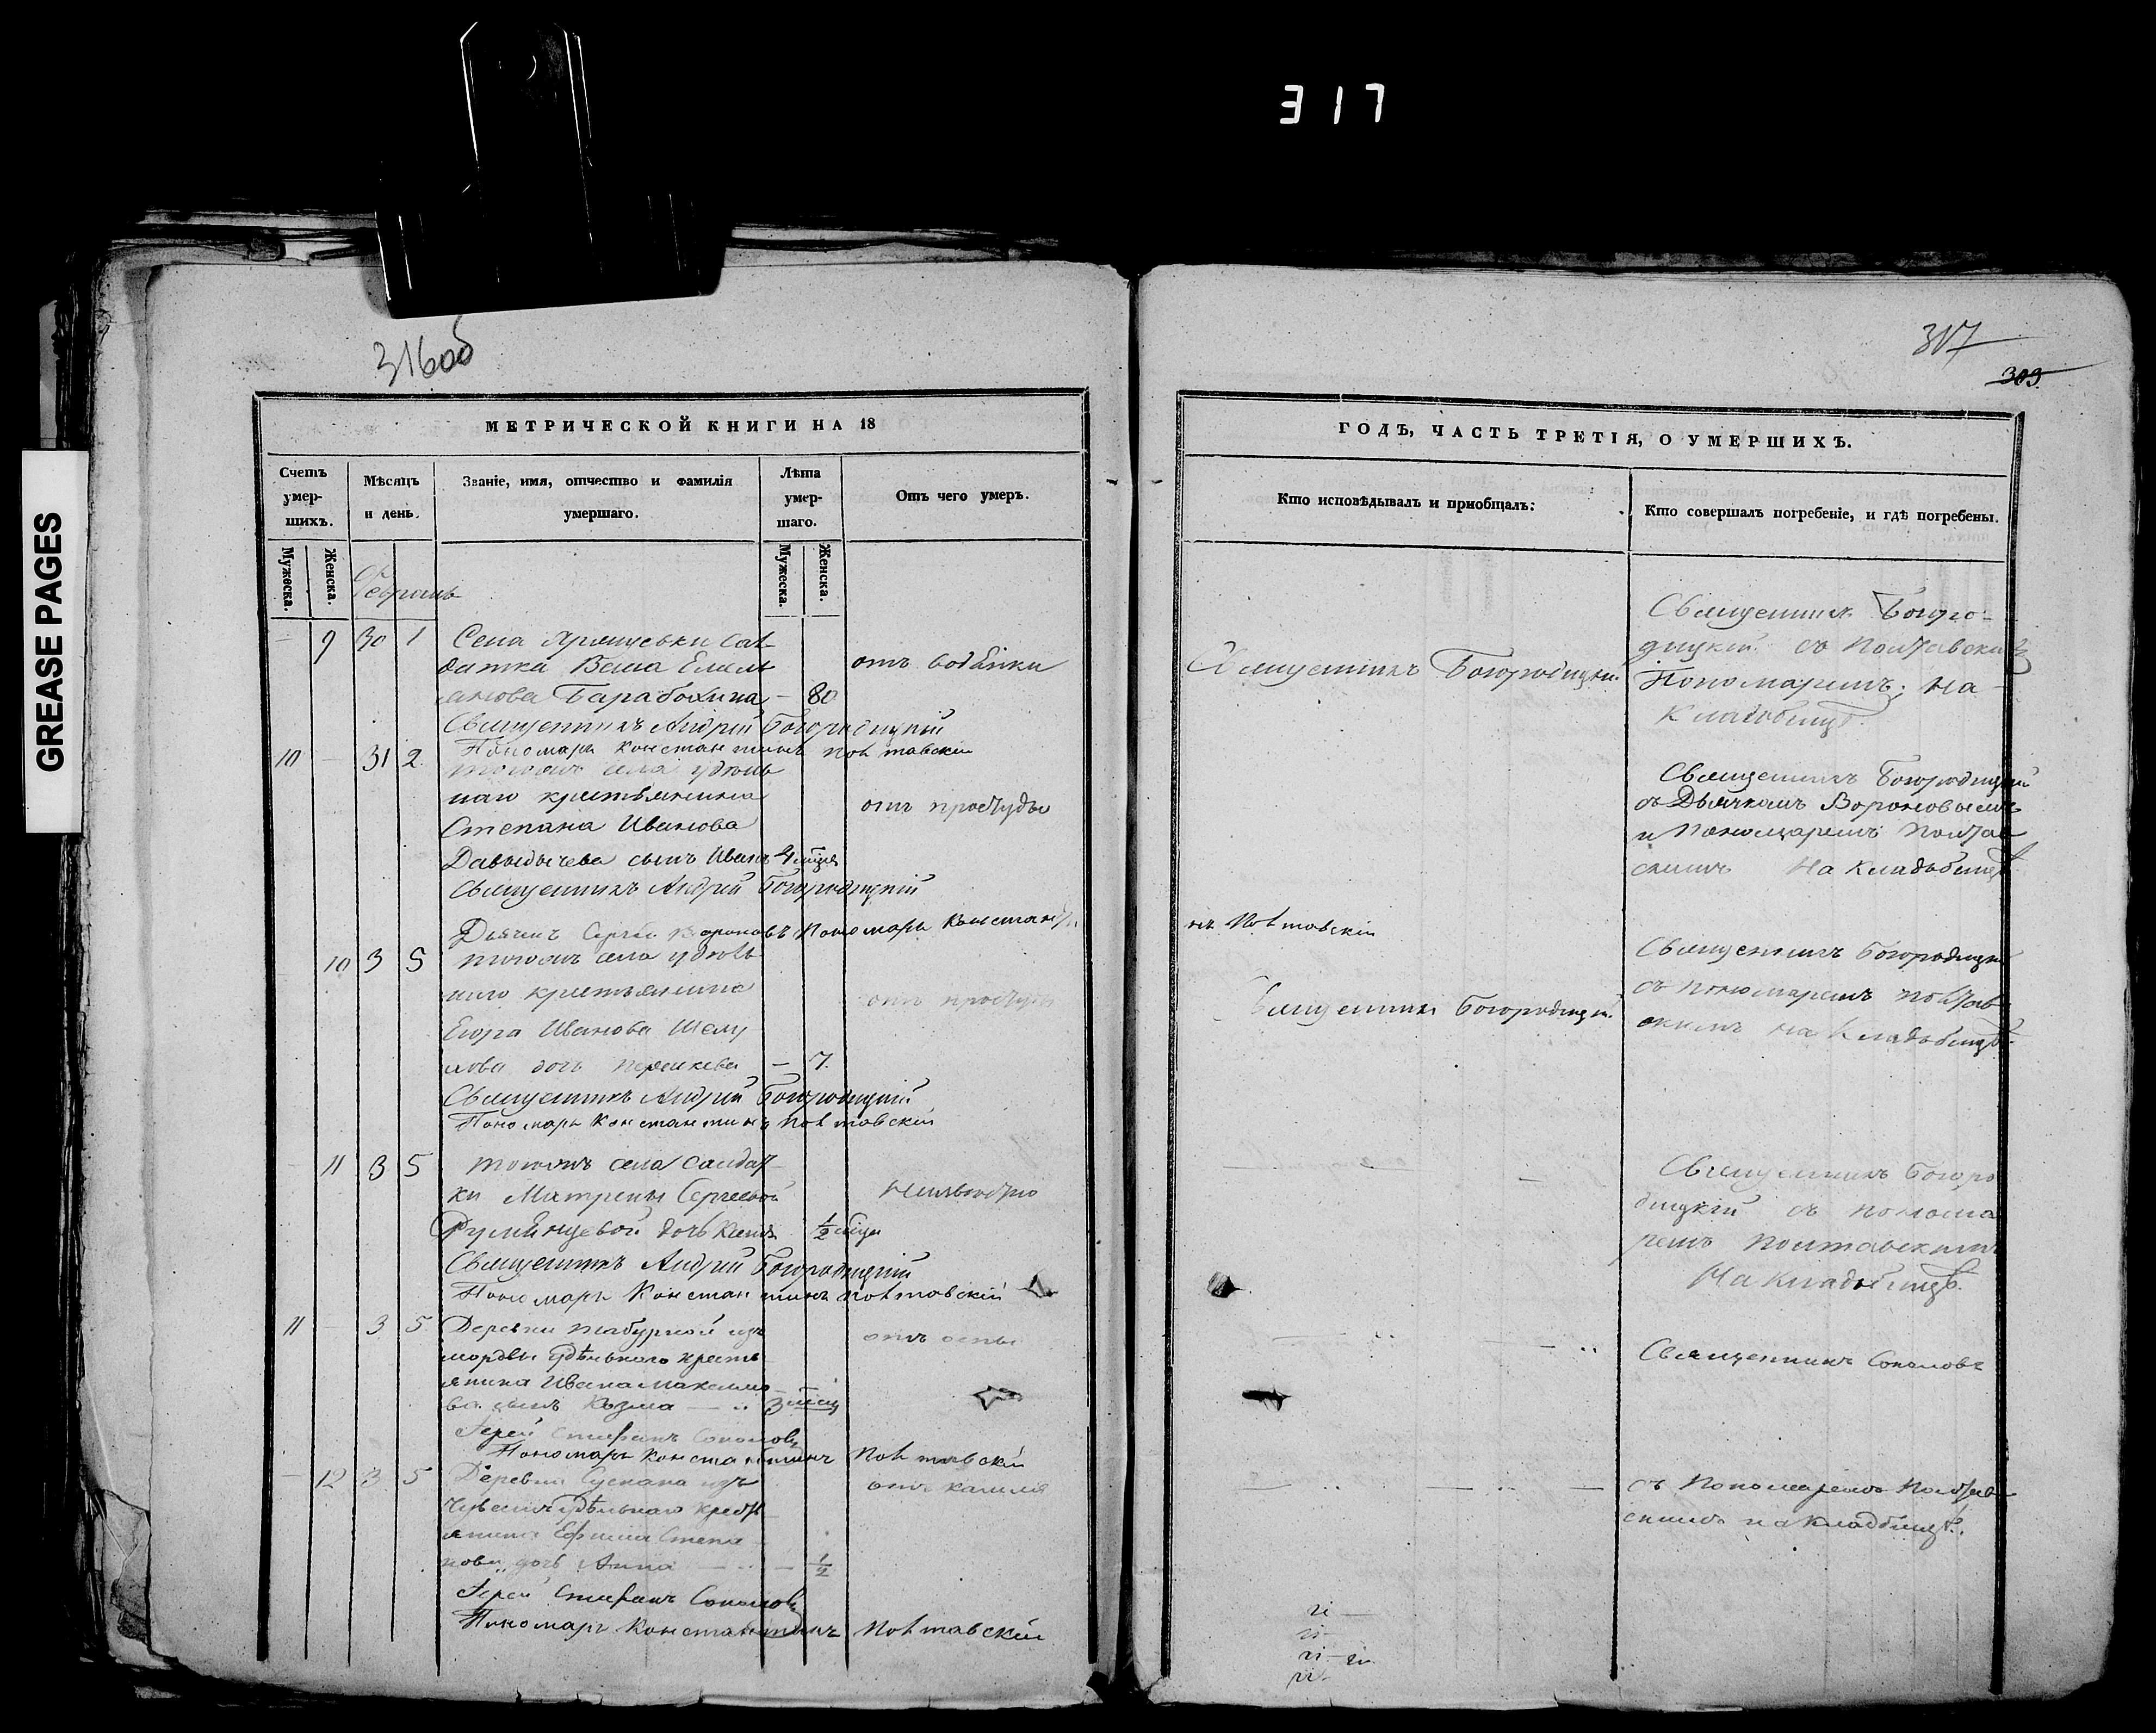 317
GREASE PAGES
316об
МЕТРИЧЕСКОЙ КНИГИ НА 18
Счетъ умершихъ.
Мѣсяцъ и день.
Званіе, имя, отчество и фамилія умершаго.
Лѣта умершаго.
Отъ чего умеръ.
Мужеска.
Женска.
Мужеска.
Женска.
Февраль
9 30 1 Села
датка Емель
янова Барабохина – 80
отъ водянки
Священникъ Андрей Богородицкій
Пономарь Константинъ Полтавскій
10 – 31 2 тогожъ села удѣль
наго крестьянина
Степана Иванова
Давыдычева сынъ Иванъ 4
отъ простуды
Священникъ Андрей Богородицкій
Дьячекъ Вороновъ Пономарь Константи
10 3 5 тогожъ села удѣль
наго крестьянина
Егора Иванова Шему
лова дочь – 7.
отъ простуды
Священникъ Андрей Богородицкій
Пономарь Константинъ Полтавскій
11 3 5 тогожъ села салдат
ки Матрены Сергеевой
Румянцевой дочь 1/2
Священникъ Андрей Богородицкій
Пономарь Константинъ Полтавскій
11 – 3 5 Деревни изъ
мордвы удѣльнаго кресть
янина Ивана Максимо
ва сынъ Козма 3
отъ оспы
Іерей Стефанъ Соколовъ
Пономарь Константинъ Полтавскій
– 12 3 5 Деревни Сускана изъ
удѣльнаго крест
янина Ефима Степа
нова дочь Анна – 1/2
отъ кашля
Іерей Стефанъ Соколовъ
Пономарь Константинъ Полтавскій
317
309
ГОДЪ, ЧАСТЬ ТРЕТІЯ, О УМЕРШИХЪ.
Кто исповѣдывалъ и пріобщалъ:
Кто совершалъ погребеніе, и гдѣ погребены.
Священникъ Богородицкій
Священникъ Богоро=
дицкій съ Полтавским
Пономаремъ, на
кладбищѣ.
Священникъ Богородицкій
съ Дьячкомъ Вороновымъ
и Пономаремъ Полтав
скимъ На Кладбищѣ
нъ Полтавскій
Священникъ Богородицкій
Священникъ Богородицкій
съ пономаремъ Полтав
скимъ на Кладбищѣ.
Священникъ Богоро
дицкій съ Понома
ремъ Полтавскимъ
На кладбищѣ.
Священникъ Соколовъ
съ Пономаремъ Полтав
скимъ на Кладбищѣ.